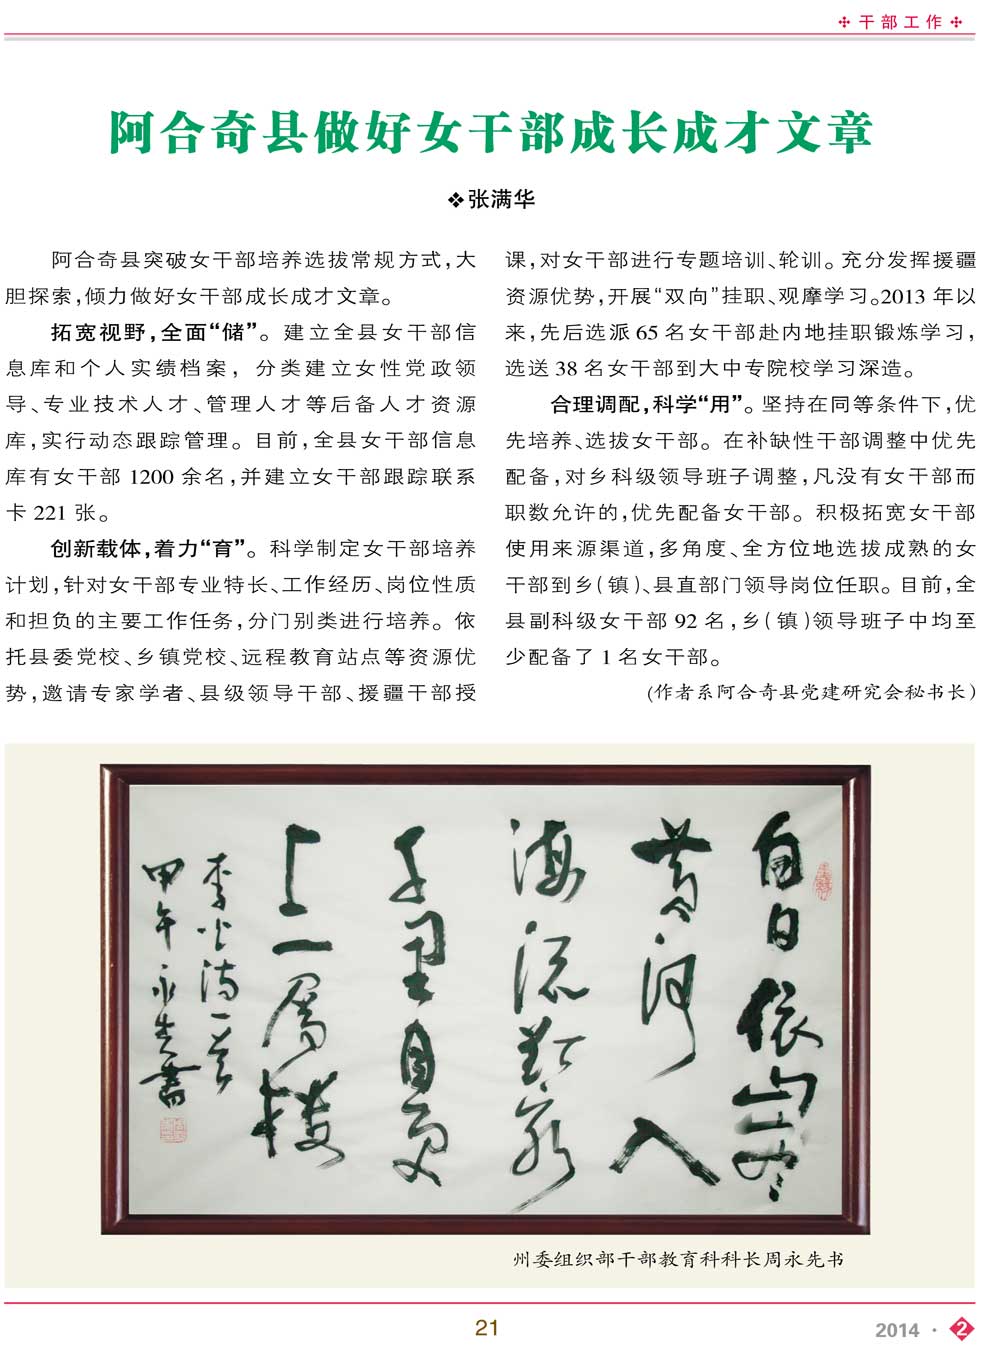 干部工作
阿合奇县做好女干部成长成才文章
❖张满华
阿合奇县突破女干部培养选拔常规方式,大
胆探索,倾力做好女干部成长成才文章。
拓宽视野,全面“储”。建立全县女干部信
息库和个人实绩档案，分类建立女性党政领
导、专业技术人才、管理人才等后备人才资源
库,实行动态跟踪管理。目前,全县女干部信息
库有女干部 1200 余名,并建立女干部跟踪联系
卡 221 张。
创新载体,着力“育”。科学制定女干部培养
计划,针对女干部专业特长、工作经历、岗位性质
和担负的主要工作任务,分门别类进行培养。依
托县委党校、乡镇党校、远程教育站点等资源优
势,邀请专家学者、县级领导干部、援疆干部授
课,对女干部进行专题培训、轮训。充分发挥援疆
资源优势,开展“双向”挂职、观摩学习。2013 年以
来,先后选派 65 名女干部赴内地挂职锻炼学习,
选送 38 名女干部到大中专院校学习深造。
合理调配,科学“用”。坚持在同等条件下,优
先培养、选拔女干部。在补缺性干部调整中优先
配备,对乡科级领导班子调整,凡没有女干部而
职数允许的,优先配备女干部。积极拓宽女干部
使用来源渠道,多角度、全方位地选拔成熟的女
干部到乡(镇)、县直部门领导岗位任职。目前,全
县副科级女干部 92 名,乡(镇)领导班子中均至
少配备了 1 名女干部。
(作者系阿合奇县党建研究会秘书长)
白日依山尽
黄河入
海流欲穷
千里目更
上一层楼
李诗一首
甲午永先書
州委组织部干部教育科科长周永先书
21
2014 · 2